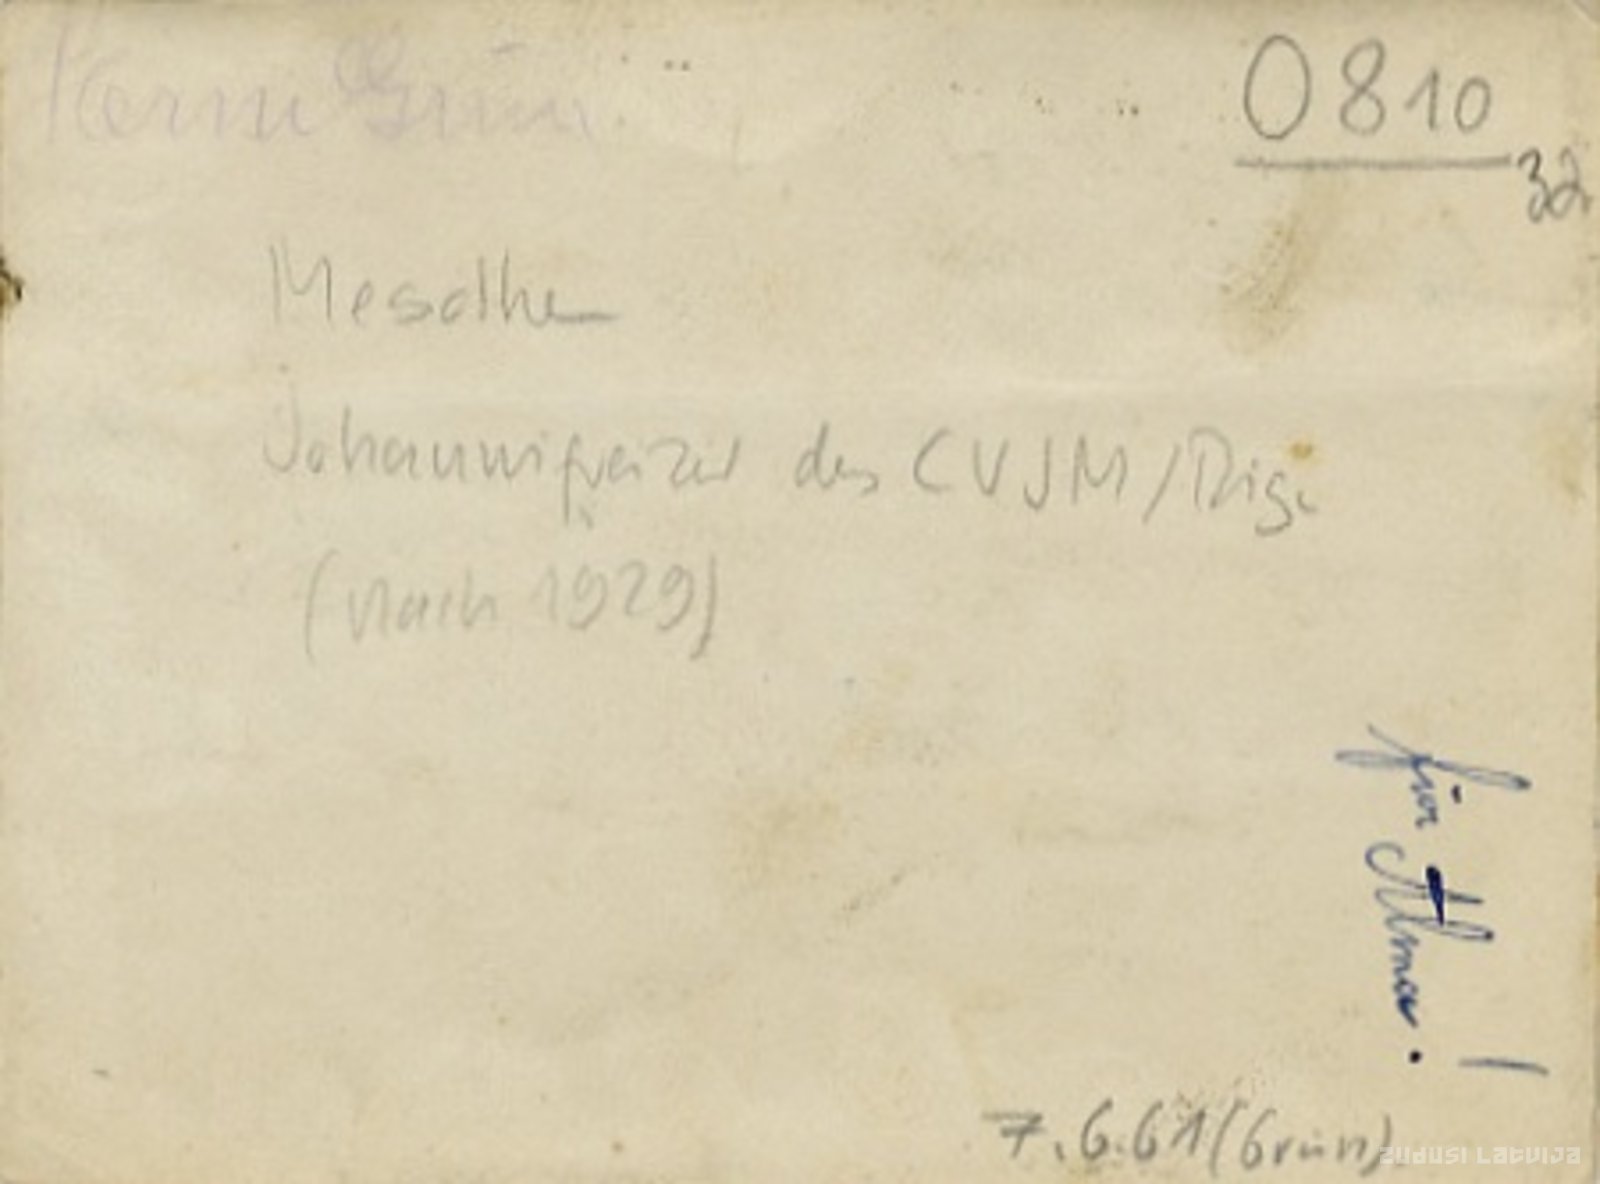 Herrn Grün.
0810
32
Mesothen
Johannifreizeit des CVJM/Riga
(nach 1929)
für Alma!
7.6.61 (Grün)
ZUDUSI LATVIJA